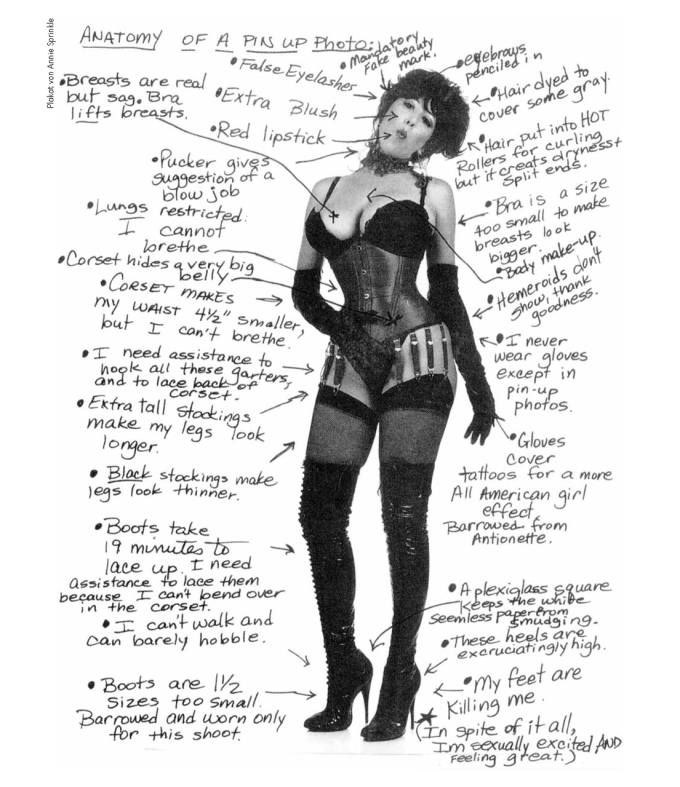 Plakat von Annie Sprinkle
ANATOMY OF A PIN UP PHOTO:
• Breasts are real
but sag. Bra
lifts breasts.
• False Eyelashes
• Extra Blush
• Red lipstick
• Pucker gives
suggestion of a
blow job
• Lungs restricted.
I cannot
brethe
• Corset hides a very big
belly
• CORSET MAKES
my WAIST 4½" smaller,
but I can't brethe.
• I need assistance to
hook all these garters,
and to lace back of
corset.
• Extra tall stockings
make my legs look
longer.
• Black stockings make
legs look thinner.
• Boots take
19 minutes to
lace up. I need
assistance to lace them
because I can't bend over
in the corset.
• I can't walk and
can barely hobble.
• Boots are 1½
sizes too small.
Barrowed and worn only
for this shoot.
• Mandatory
Fake beauty
mark.
• eyebrows
penciled in
• Hair dyed to
cover some gray.
• Hair put into HOT
Rollers for curling
but it creats dryness +
Split ends.
• Bra is a size
too small to make
breasts look
bigger.
• Body make-up.
• Hemeroids don't
show, thank
goodness.
• I never
wear gloves
except in
pin-up
photos.
• Gloves
cover
tattoos for a more
All American girl
effect.
Barrowed from
Antionette.
• A plexiglass square
keeps the white
seemless paper from
smudging.
• These heels are
excruciatingly high.
• My feet are
Killing me.
(In spite of it all,
I'm sexually excited AND
feeling great.)